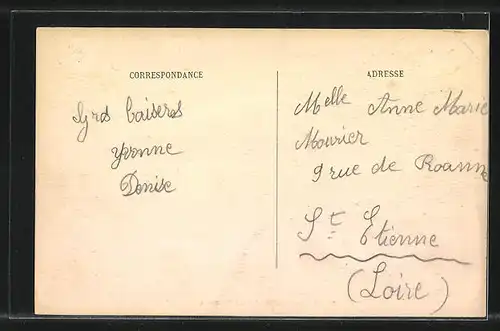 CORRESPONDANCE
baisers
Yvonne
Denise
ADRESSE
Melle Anne Marie
Mourier
9 rue de Roanne
St Etienne
(Loire)